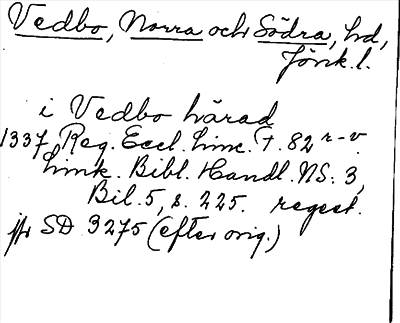 Vedbo, Norra och Södra, hd,
Jönk. l.
i Vedbo härad
1337 Reg. Eccl. Linc. f. 82 r-v.
Link. Bibl. Handl. NS: 3,
Bil. 5, s. 225. regest.
jfr SD 3275 (efter orig.)